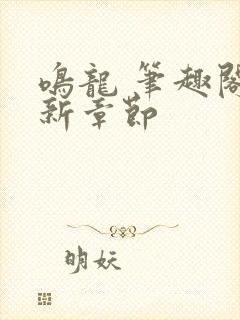 鳴龍 筆趣閣
新章節
明妖